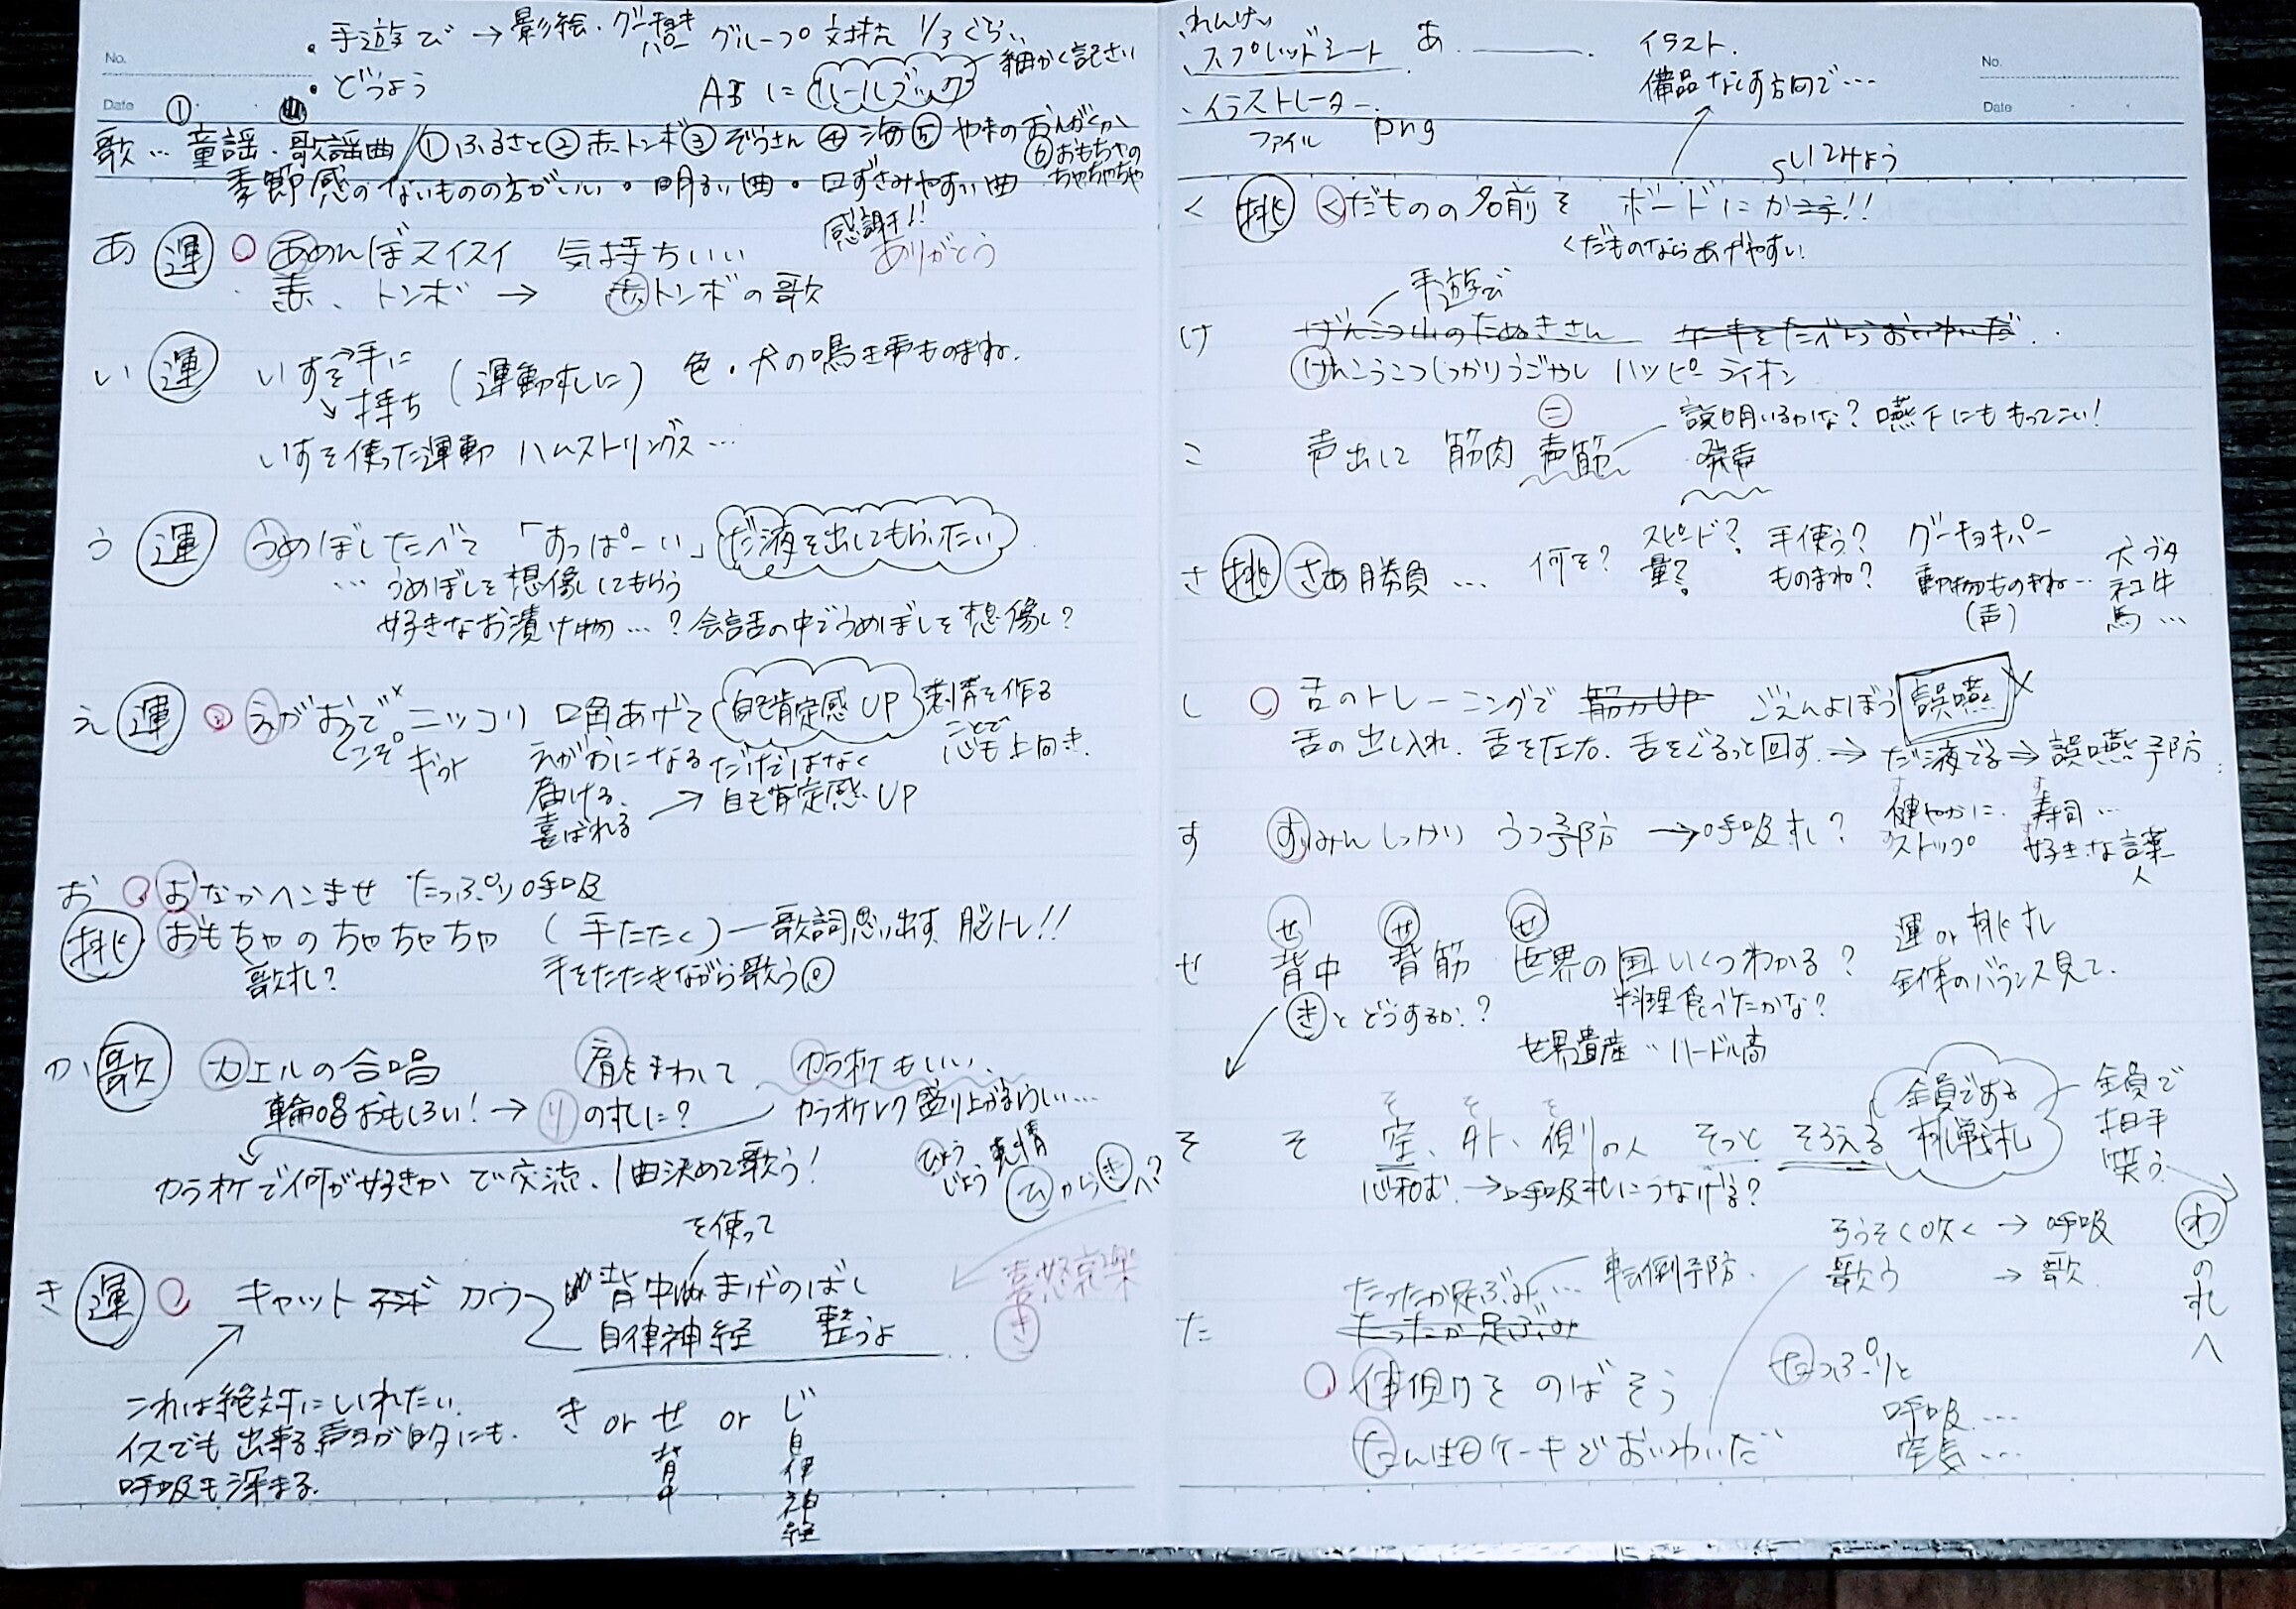 ・手遊び → 影絵・グーチョキパー グループ対抗 1/3ぐらい
・どうよう
A5に ルールブック 細かく記さい
No.
Date ①
歌… 童謡・歌謡曲 ①ふるさと ②赤トンボ ③ぞうさん ④海 ⑤やまのおんがくか ⑥おもちゃのちゃちゃちゃ
季節感のないものの方がいい・明るい曲・口ずさみやすい曲
感謝も!!
あ 運 あめんぼスイスイ 気持ちいい ありがとう
赤、トンボ → 赤トンボの歌
い 運 いすを→手に持ち (運動札に) 色・犬の鳴き声ものまね.
いすを使った運動 ハムストリングス…
う 運 うめぼしたべて 「すっぱーい」 だ液を出してもらいたい
… うめぼしを想像してもらう
好きなお漬け物…? 会話の中でうめぼしを想像し?
え 運 えがおで ニッコリ 口角あげて 自己肯定感UP 表情を作ることで心も上向き.
こそ ギフト
えがおになるだけではなく
届ける、喜ばれる → 自己肯定感UP
お おなかへこませ たっぷり呼吸
挑 おもちゃのちゃちゃちゃ (手たたく)ー歌詞思い出す 脳トレ!!
歌札? 手をたたきながら歌う
か 歌 カエルの合唱 肩をまわして カラオケもいい、
輪唱おもしろい! → り の札に? カラオケレク盛り上がるらしい…
カラオケで何が好きか で交流、1曲決めて歌う!
ひょうじょう 表情
ひからきへ?
を使って
き 運 キャット カウ 背中 まげのばし
自律神経 整うよ
喜怒哀楽
き
これは絶対にいれたい.
イスでも出来る
呼吸も深まる.
き or せ or じ
背中
自律神経
れんけい
・スプレッドシート あ.
・イラストレーター.
ファイル png
イラスト.
備品なしす方向で…
No.
Date
く 挑 くだものの名前を ボードに か !!
くだものならあげやすい
手遊び
け げんこつ山のたぬきさん
けんこうこつしっかりうごかし ハッピーライオン
こ 声出して 筋肉 声筋 説明いるかな? 嚥下にももってこい!
発声
さ 挑 さあ勝負… 何を? スピード? 量? 手使う? ものまね? グーチョキパー
動物ものまね… (声) 犬 ブタ ネコ 牛 馬…
し 舌のトレーニングで 筋力UP ごえんよぼう 誤嚥
舌の出し入れ. 舌を左右. 舌をぐるっと回す. ⇒ だ液でる ⇒ 誤嚥予防
す すいみんしっかり うつ予防 → 呼吸札? 健やかに. 寿司…
ストップ 好きな言葉 人
せ せ せ
せ 背中 背筋 世界の国いくつわかる?
きとどうするか? 料理食べたかな?
世界遺産… ハードル高
運 or 挑 札
全体のバランス見て.
そ そ 空、外、側の人 そっと そろえる 全員でする挑戦札
全員で拍手笑う
わの札へ
心和む. → 呼吸札につなげる?
ろうそく吹く → 呼吸
歌う → 歌
た たったか足ぶみ… 転倒予防.
たったか足ぶみ
体側をのばそう
たん生日ケーキでおいわいだ
たっぷりと
呼吸…
空気…